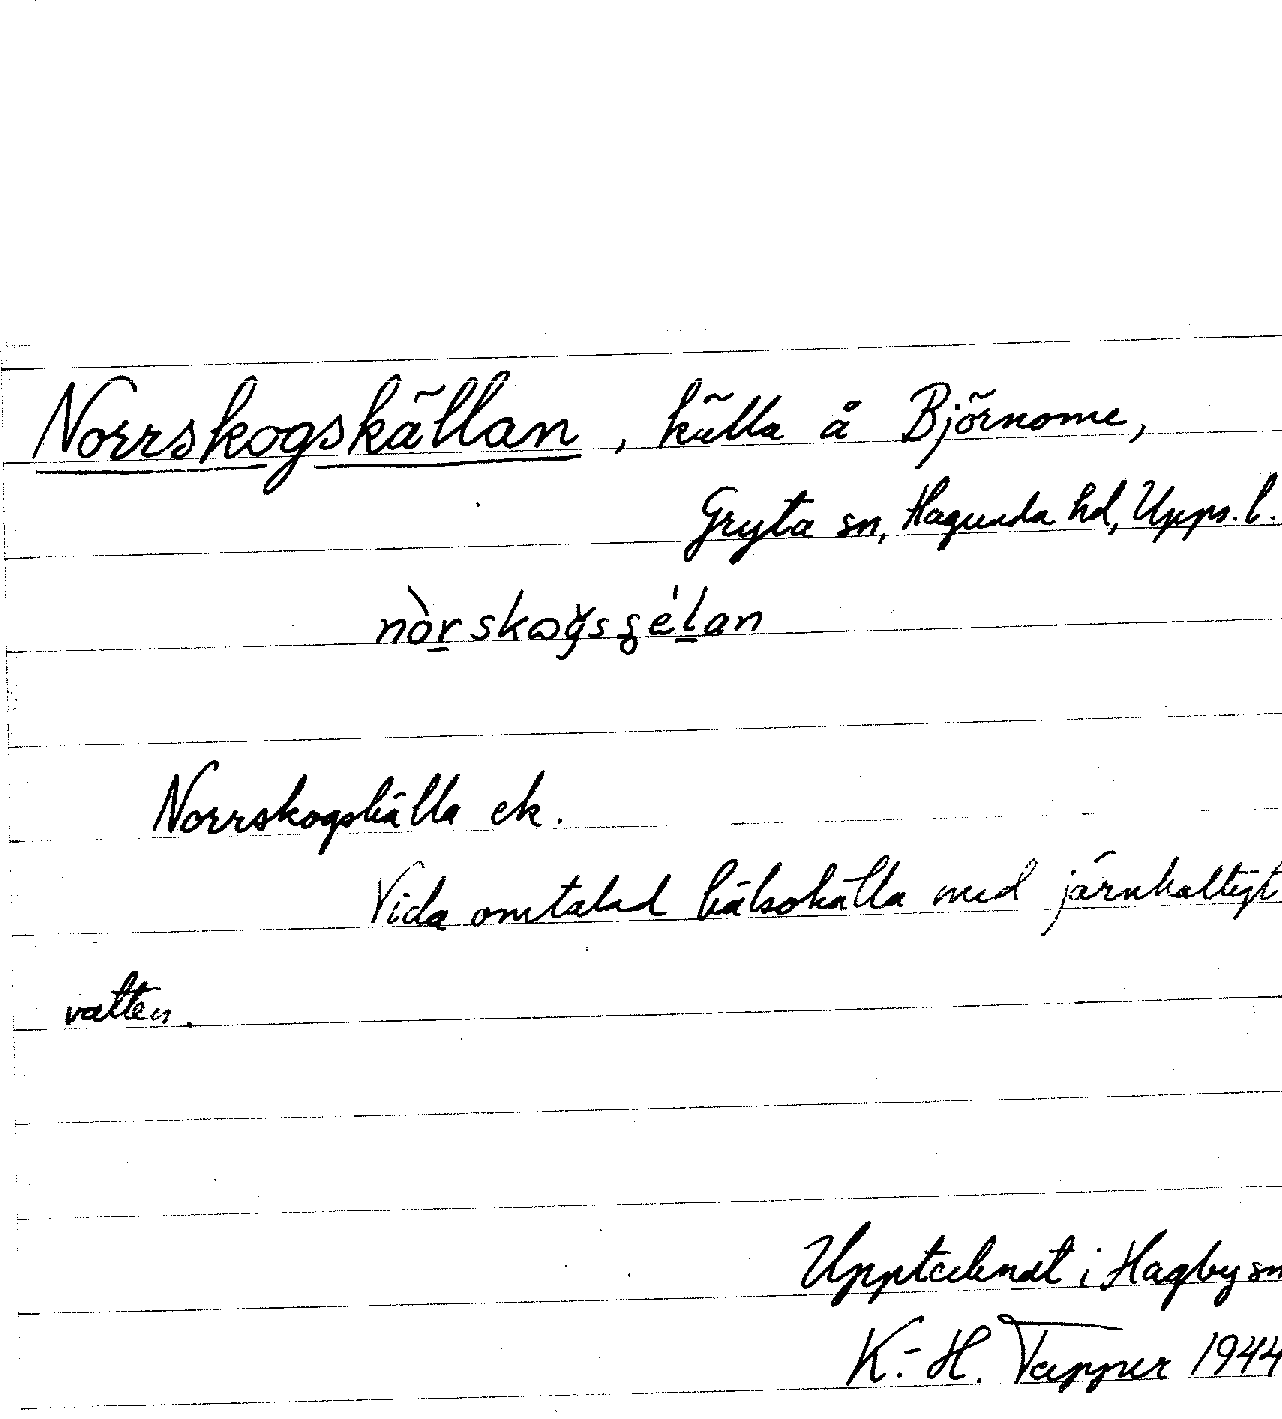 Norrskogskällan, källa å Björnome,
Gryta sn, Hagunda hd, Upps. l.
Norrskogskälla ek.
Vida omtalad hälsokälla med järnhaltigt
vatten.
Upptecknat i Hagby sn
K.-H. Tapper 1944